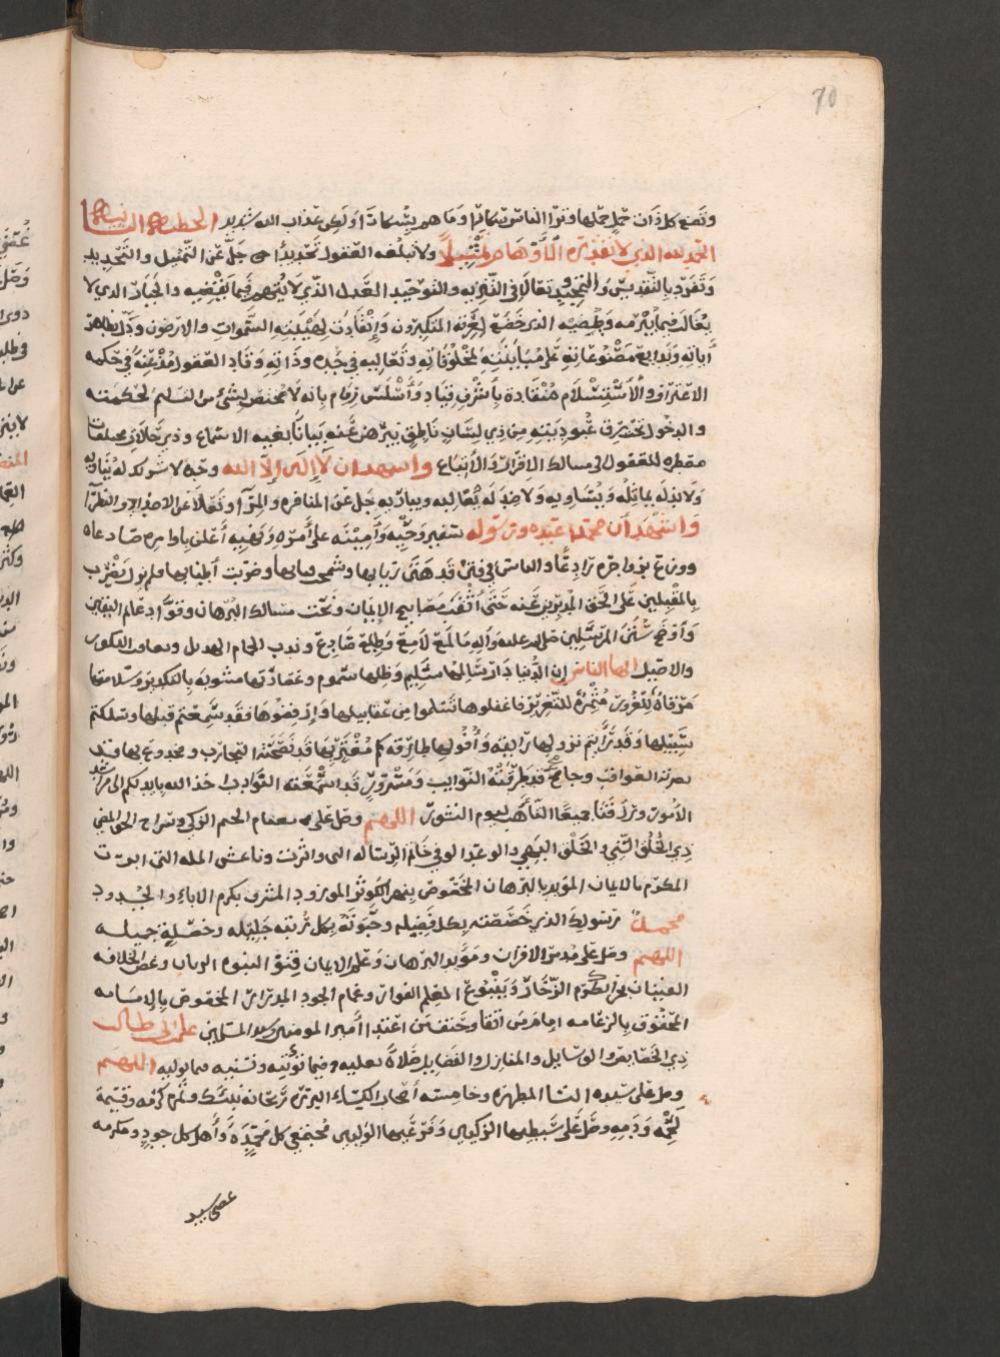 70
وتضع كل ذات حمل حملها وترى الناس سكارى وما هم بسكارى ولكن عذاب الله شديد الخطبة الثانية
الحمد لله الذي لا تقدره الأوهام تمثيلاً ولا تبلغه العقول تحديداً جل عن التمثيل والتحديد
وتفرد بالتقديس والتمجيد وتعالى في التنزيه والتوحيد العدل الذي لا يتهم فيما يقضيه والجبار الذي لا
يغالب فيما يبرمه ويمضيه الذي خضع لعزته المتكبرون وانقادت لهيبته السموات والارضون ودل بظاهر
آياته وبدايع مصنوعاته على مباينته لمخلوقاته وتعاليه في مجده وذاته وقاد العقول مذعنة في حكمه
الاعتراف والاستسلام منقادة بأشرف قياد وأسلس زمام بانه لا مختص لشئ من لحكمته
والدخول تحت رق عبوديته من ذي لسان ناطق يبرهن عنه بيانا بغيبه الاسماع وذي
مقطره للعقول الى مسالك الاقرار والاتباع واشهد ان لا إله إلا الله وحده لا شريك له
ولا ند له يماثله ويساويه ولا ضد له يغالبه ويباريه جل عن المنافره والمرآ وتعالى عن الاضداد والنظرآ
واشهد أن محمدا عبده ورسوله سفير وحيه وأمينه على أمره ونهيه أعلن باوامره صادعاً
ووزع بزواجره رادعًا والناس في فتن قد وضربت أطنابها فلم يزل يضرب
بالمقبلين على الحق المدبرين عنه حتى أثقب مصابيح الإيمان ونحت مسالك البرهان وقوّا دعائم اليقين
وأوضح سنن المرسلين صلى الله عليه وآله ما لمع لامع وطلع صادع وندب الحمام الهديل وتعاقب البكور
والاصيل ايها الناس إن الدنيا دار سالمها سليم وظلها سموم وغضارتها مشوبة بالتكدير وسلامتها
مرقاة للغرور مثمرة للتغرير فاغفلوها تسلموا من عقابيلها وارفضوها فقد سمعتم قبلها وسلكتم
سبيلها وقد رأيتم نزولها رايقه وأفولها طارقه كم مغتر بها قد نصحته التجارب ومخدوع بها قد
بصرته العواقب وجامح قد طرقته النوايب ومسرور قد اسمعته النوادب اخذ الله بايديكم الى مراشد
الأمور ورزقنا جميعًا التأهب ليوم النشور اللهم وصل على الحلم الزكي وسراج الحق المضي
ذي الخلق السني والخلق البهي والوعد الوفي خاتم الرسالة وناعش الملة التي
المكرم بالايمان المؤيد بالبرهان المخصوص بنهر الكوثر المورود المشرف بكرم الاباء والجدود
محمد رسولك الذي خصصته بكل فضيله وحبوته بكل رتبة جليله وخصلة جميله
اللهم وصل على مدمر الاقران ومؤيد البرهان وعلم الايمان
بحر الكرم الزخار وينبوع العلم الفوار وغمام الجود المدرار المخصوص بالإمامه
المحقوق بالزعامه امام من اتقا وحنف من اعتدا أمير المؤمنين وسيد المسلمين علي بن ابي طالب
ذي الخصايص والوسايل والمنازل والفضايل صلاة تعليه فيما توتيه وتسنيه فيما توليه اللهم
وصل على سيدة النسا المطهره وخامسة أصحاب الكساء البرره ريحانة نبيك وثمره كرمه وقسيمة
لحمه ودمه وصل على سبطيها الزكيين وفرعيها الوليين مجتمعي كل محمدة وأهل كل جود ومكرمه